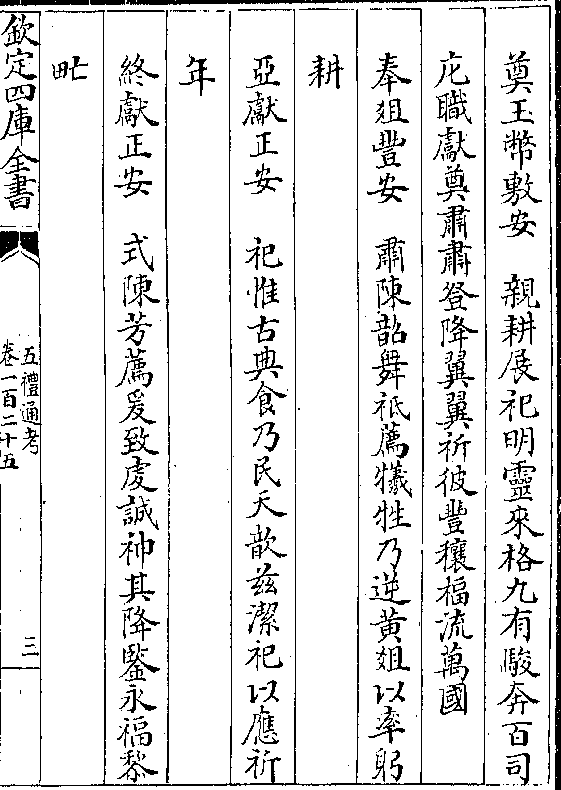 奠玉幣敷安　親耕展祀明靈來格九有駿奔百司
庀職獻奠肅肅登降翼翼祈彼豐穰福流萬國
奉俎豐安　肅陳韶舞祇薦犧牲乃逆黄俎以率躬
耕
亞獻正安　祀惟古典食乃民天歆兹潔祀以應祈
年
終獻正安　式陳芳薦爰致虔誠神其降鑒永福黎
甿
欽定四庫全書
五禮通考
卷一百二十五
三